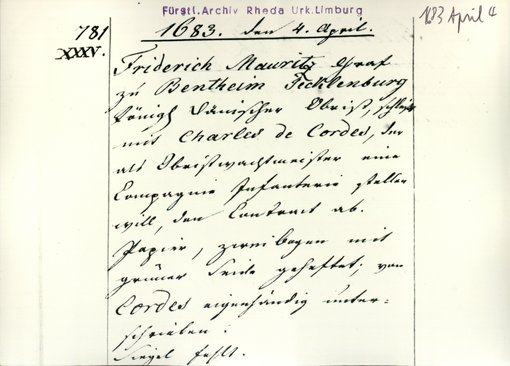 Fürstl. Archiv Rheda Urk. Limburg
1683 April 4
781
XXXV.
1683. den 4. April.
Friderich Mauritz Graf
zu Bentheim Tecklenburg
Königl Dänischer Obrist, schließt
mit Charles de Cordes, der
als Obristwachtmeister eine
Compagnie Infanterie stellen
will, den Contract ab.
Papier, zwei bogen mit
grüner Seide geheftet; von
Cordes eigenhändig unter-
schrieben.
Siegel fehlt.